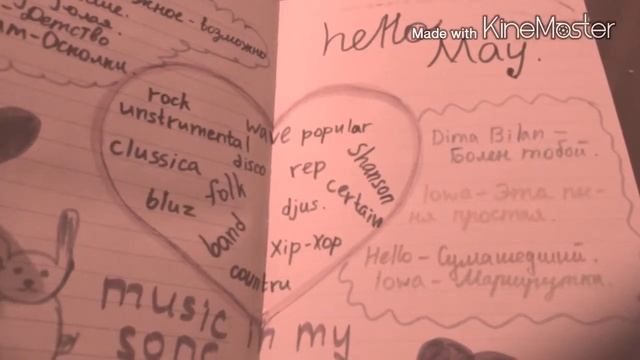 жное-возможно
Голая.
Детство
там-Осколки
hello
May.
Made with KINEMASTER
rock
unstrumental
clussica
bluz
folk
disco
band
countru
wave popular
rep
shanson
certain
djus.
xip-xop
music in my
song
Dima Bilan –
Болен тобой.
Iowa – Эта пе-
ня простая.
Hello – Сумашедший.
Iowa – Маршрутка.